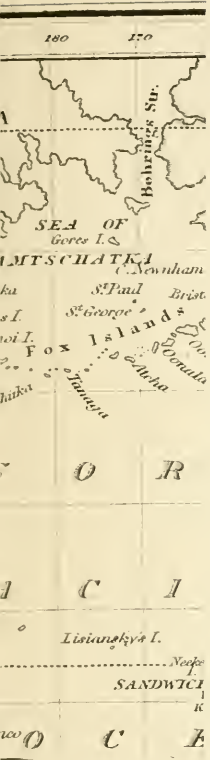 180 170
A
Behrings Str.
SEA OF
Gores I.
AMTSCHATKA
C. Newnham
ka St. Paul Brist
s I. St. George
noi I.
Fox Islands
Oonala
Atcha
Tanaga
O R
C I
Lisiansky's I.
Necke
I.
SANDWICI
K
O C E